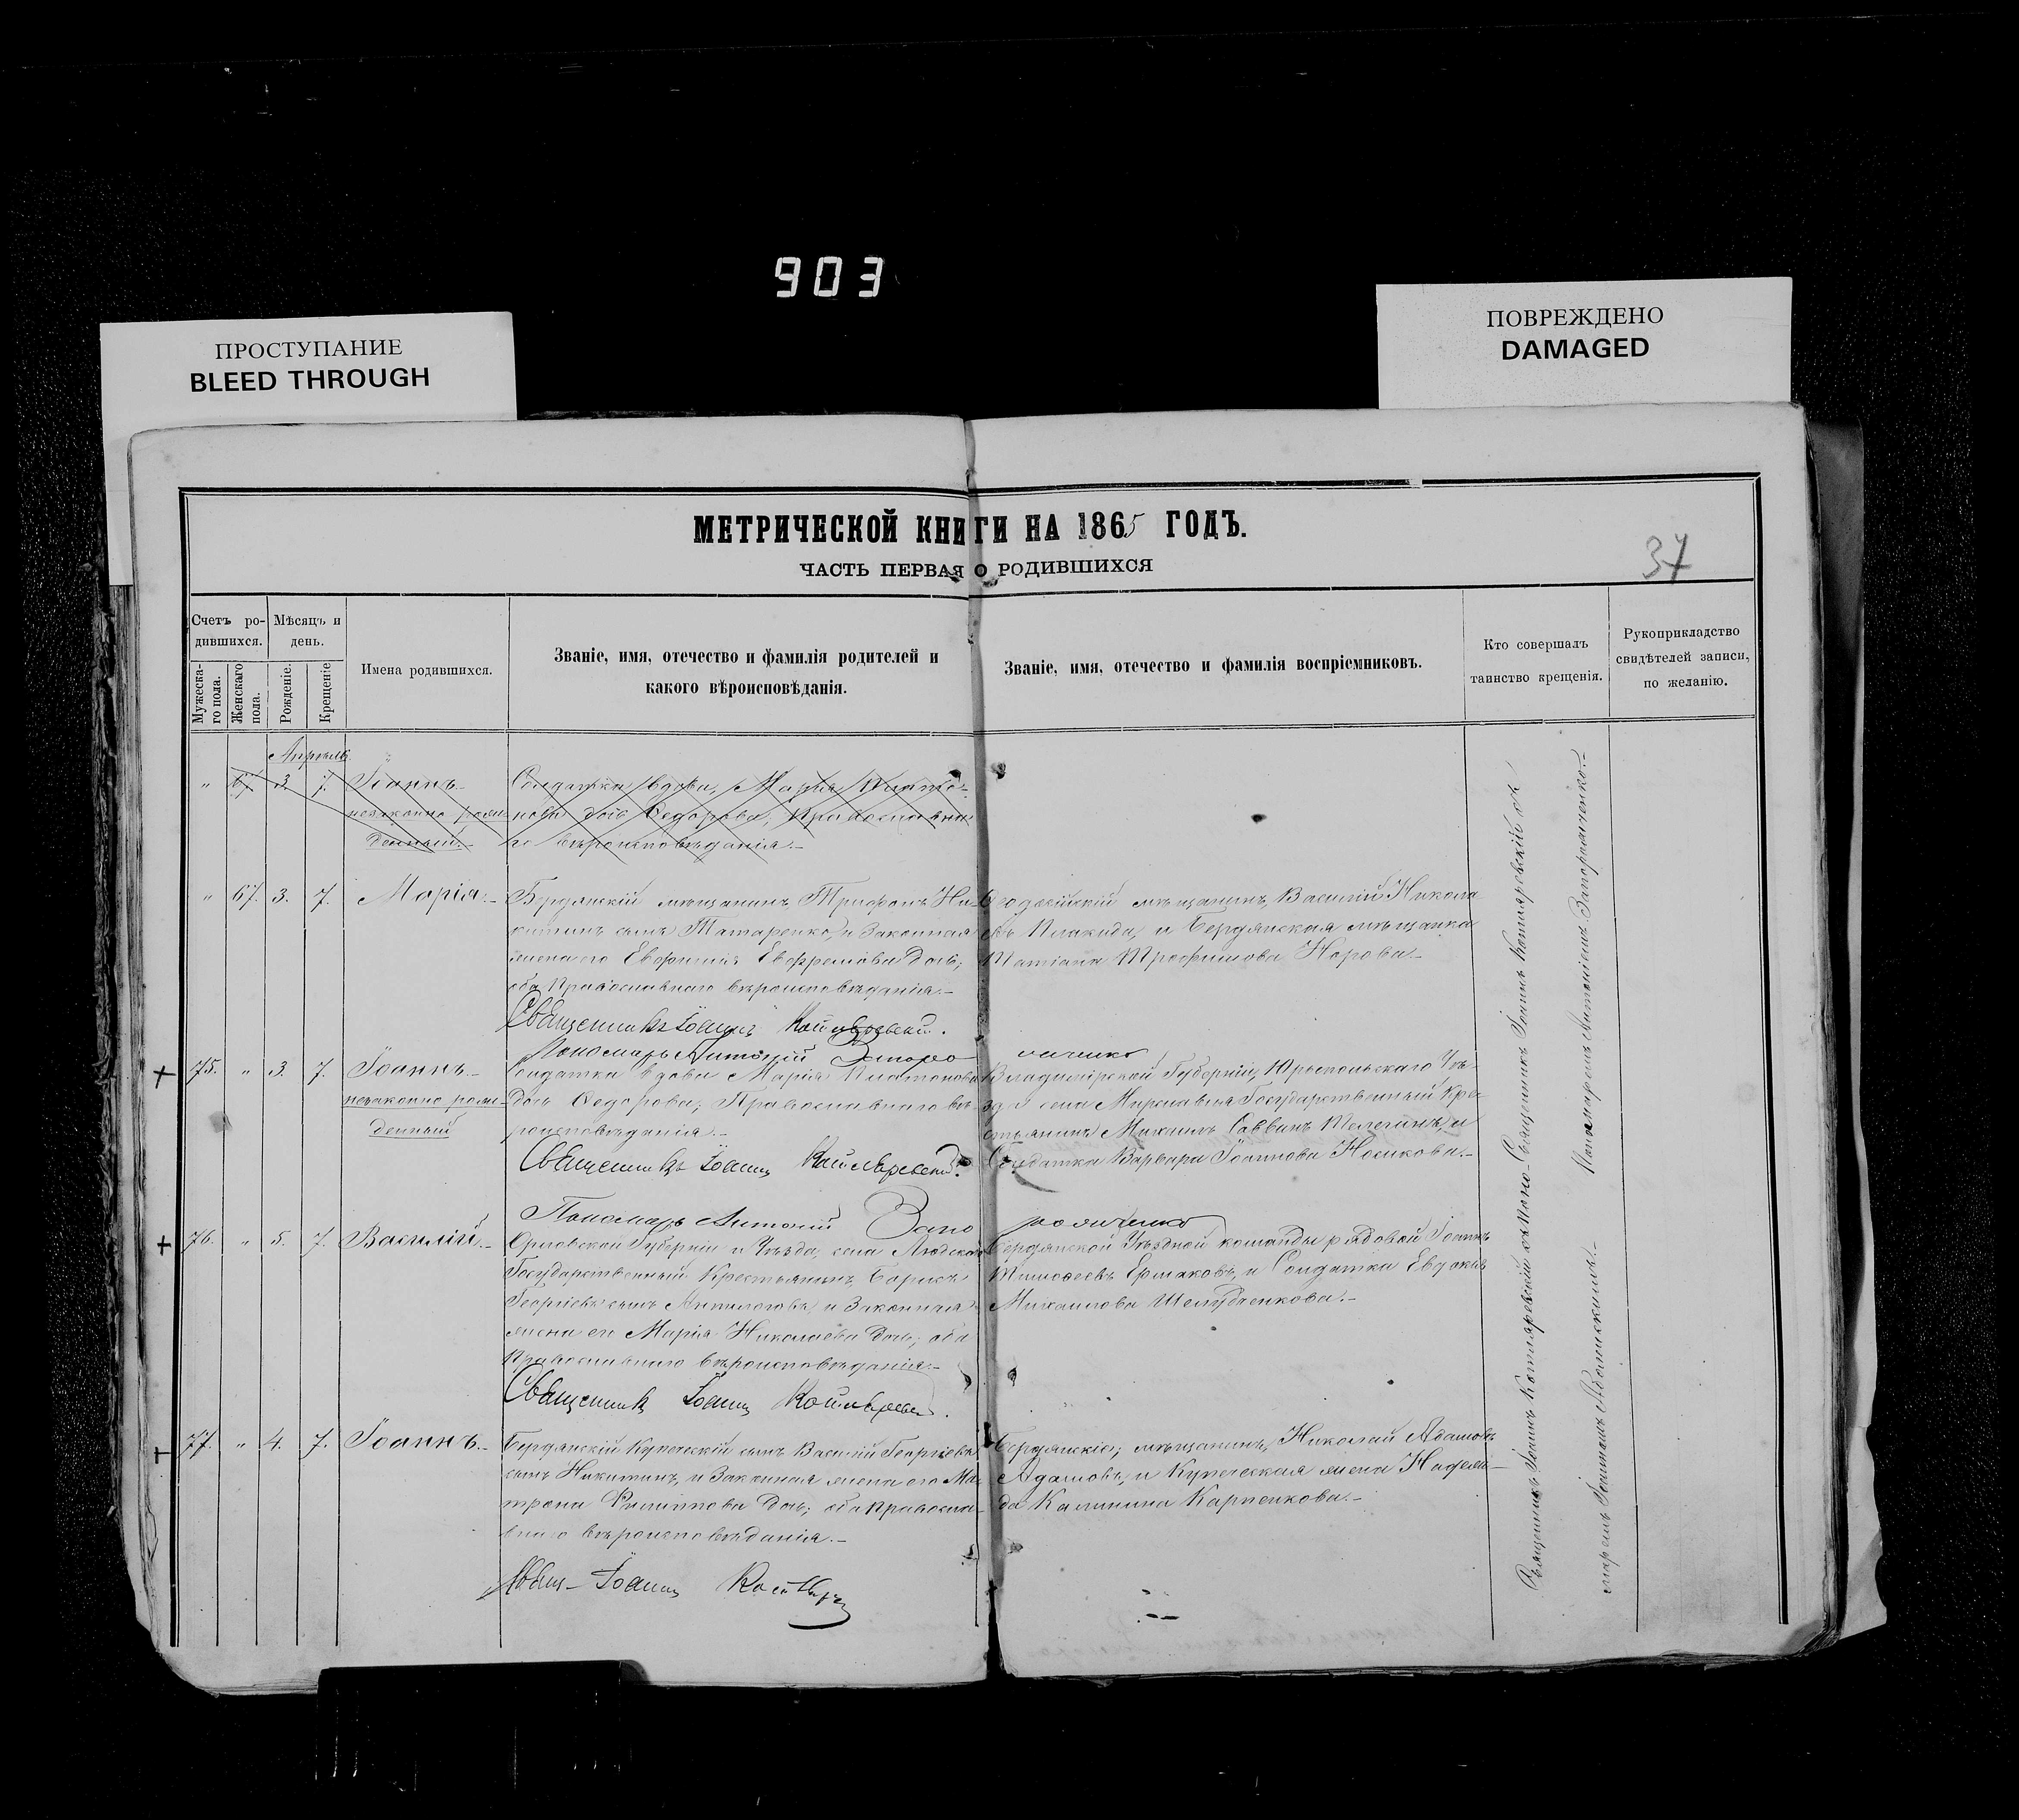 903
ПРОСТУПАНИЕ
BLEED THROUGH
ПОВРЕЖДЕНО
DAMAGED
МЕТРИЧЕСКОЙ КНИГИ НА 1865 ГОДЪ.
ЧАСТЬ ПЕРВАЯ О РОДИВШИХСЯ
37
Счетъ ро-
дившихся.
Мужеска-
го пола.
Женскаго
пола.
Мѣсяцъ и
день.
Рожденіе.
Крещеніе
Имена родившихся.
Званіе, имя, отечество и фамилія родителей и
какого вѣроисповѣданія.
Званіе, имя, отечество и фамилія воспріемниковъ.
Кто совершалъ
таинство крещенія.
Рукоприкладство
свидѣтелей записи,
по желанію.
Апрѣль
" 67 3. 7. Іоаннъ
незаконно рож-
денный.
Солдатка вдова, Марія Плато-
нова дочь Ѳедорова; Православна-
го вѣроисповѣданія.
" 67. 3. 7. Марія.
Бердянскій мѣщанинъ Трифонъ Ни-
китинъ сынъ Татаренко, и Законная
жена его Евфимія Ефремова дочь;
оба Православнаго вѣроисповѣданія.
Ѳеодосійскій мѣщанинъ, Василій Никола
евъ Плакида, и Бердянская мѣщанка
Татіана Трофимова Норова.
Священникъ Іоаннъ Котляревскій.
Пономарь Антоній Запорожченко
75. " 3. 7. Іоаннъ.
незаконно рож-
денный
Солдатка вдова Марія Платонова
дочь Ѳедорова; Православнаго вѣ-
роисповѣданія.
Владимірской Губерніи, Юрьепольскаго Уѣ-
зда села Мирславля Государственный Кре-
стьянинъ Михаилъ Саввинъ Телегинъ, и
Солдатка Варвара Іоаннова Носикова.
Священникъ Іоаннъ Котляревскій.
Пономарь Антоній Запорожченко
76. " 5. 7. Василій.
Орловской Губерніи и Уѣзда, села
Государственный Крестьянинъ, Борисъ
Георгіевъ сынъ и Законная
жена его Марія Николаева дочь; оба
Православнаго вѣроисповѣданія.
Бердянской Уѣздной команды рядовой Іоаннъ
Тимоѳеевъ Ермаковъ, и Солдатка Евдокія
Михаилова Шелудченкова.
Священникъ Іоаннъ Котляревскій.
77. " 4. 7. Іоаннъ.
Бердянскій Купеческій сынъ Василій Георгіевъ
сынъ Никитинъ, и Законная жена его Ма-
трона Филиппова дочь; оба Правосла-
внаго вѣроисповѣданія.
Бердянскіе; мѣщанинъ, Николай Адамовъ
Адамовъ, и Купеческая жена Надеж-
да Калинина Карпенкова.
Свящ. Іоаннъ Котляр
Священникъ Іоаннъ Котляревскій съ
Пономаремъ Антоніемъ Запорожченко.
Священникъ Іоаннъ Котляревскій съ Поно-
маремъ Іоанномъ Адамскимъ.